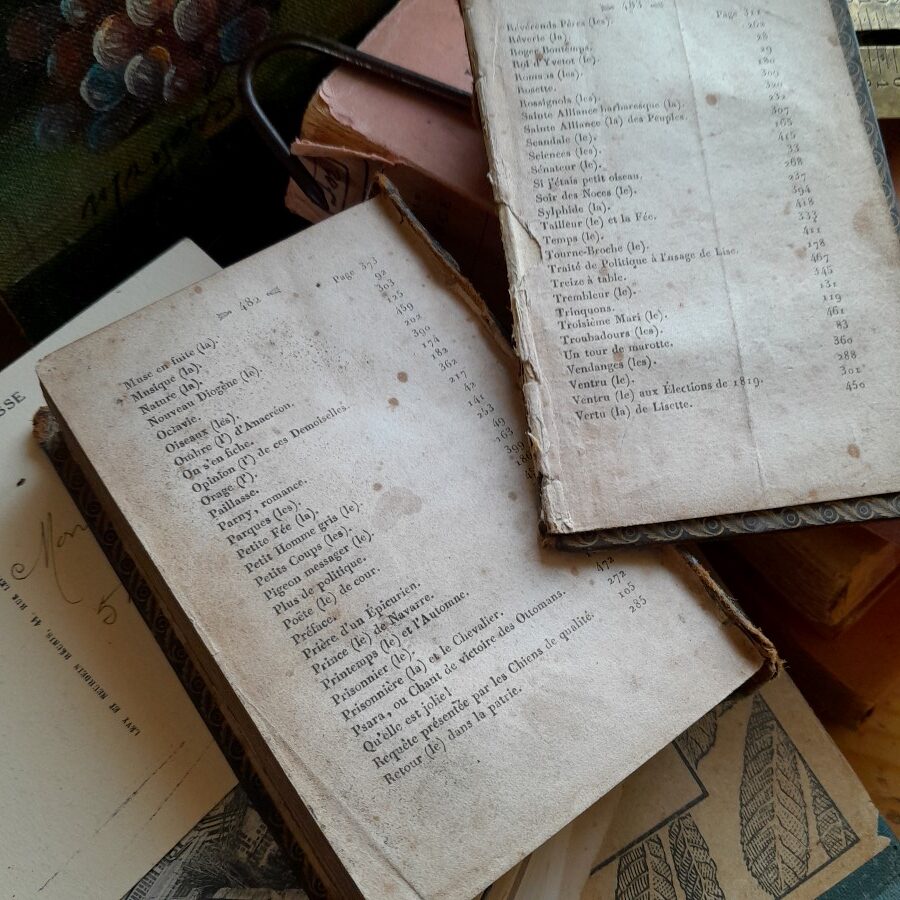 482
Page 373
Muse en fuite (la). 92
Musique (la). 303
Nature (la). 125
Nouveau Diogène (le). 459
Octavie. 202
Oiseaux (les). 390
Ombre (l') d'Anacréon. 174
On s'en fiche. 182
Opinion (l') de ces Demoiselles. 362
Orage (l'). 217
Paillasse. 42
Parny, romance. 141
Parques (les).
Petite Fée (la).
Petit Homme gris (le).
Petits Coups (les).
Pigeon messager (le).
Plus de politique.
Poëte (le) de cour.
Préface.
Prière d'un Épicurien.
Prince (le) de Navarre.
Printemps (le) et l'Automne.
Prisonnier (le).
Prisonnière (la) et le Chevalier.
Psara, ou Chant de victoire des Ottomans. 472
Qu'elle est jolie! 272
Requête présentée par les Chiens de qualité. 105
Retour (le) dans la patrie. 285
483
Révérends Pères (les). Page 311
Rêverie (la). 262
Roger Bontemps. 28
Roi d'Yvetot (le). 29
Romans (les). 180
Rosette. 309
Rossignols (les). 320
Sainte Alliance barbaresque (la). 232
Sainte Alliance (la) des Peuples. 307
Scandale (le). 165
Sciences (les). 415
Sénateur (le). 33
Si j'étais petit oiseau. 268
Soir des Noces (le). 237
Sylphide (la). 394
Tailleur (le) et la Fée. 418
Temps (le). 333
Tourne-Broche (le). 411
Traité de Politique à l'usage de Lise. 178
Treize à table. 467
Trembleur (le). 345
Trinquons. 131
Troisième Mari (le). 119
Troubadours (les). 461
Un tour de marotte. 83
Vendanges (les). 360
Ventru (le). 288
Ventru (le) aux Élections de 1819. 301
Vertu (la) de Lisette. 450
LEVY ET NEURDEIN RÉUNIS, 44, RUE